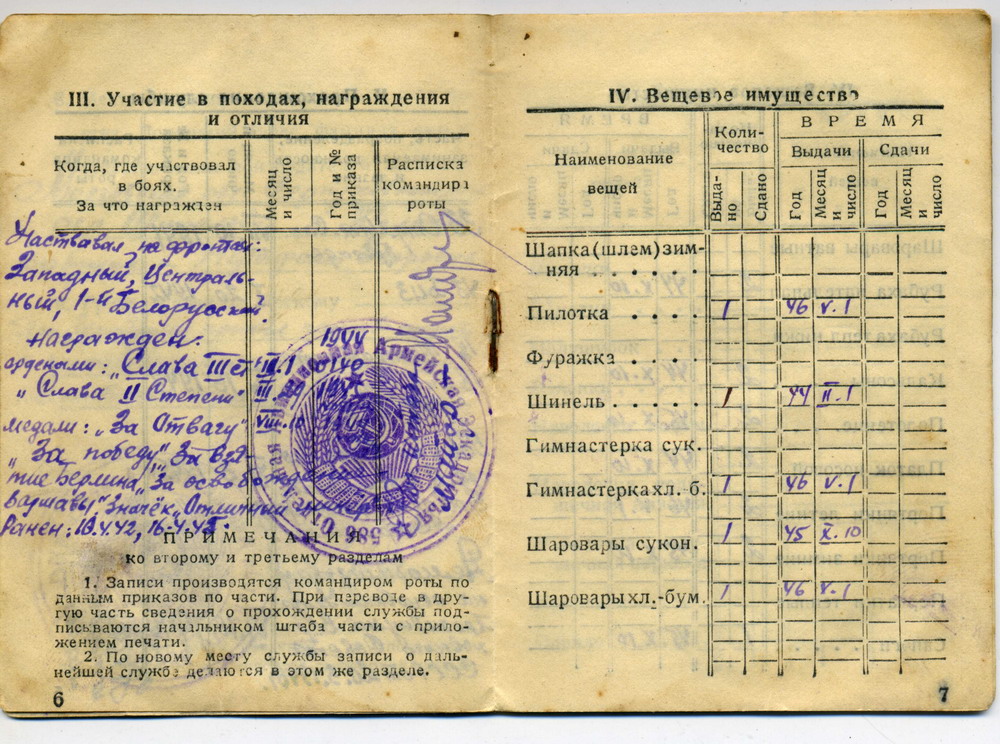 III. Участие в походах, награждения
и отличия
Когда, где участвовал
в боях.
За что награжден
Месяц
и число
Год и №
приказа
Расписка
командира
роты
Участвовал на фронтах:
Западный, Централь-
ный, 1-й Белорусский.
Награжден:
орденами: „Слава III ст"
1944
„Слава II Степени"
медали: „За Отвагу"
„За победу", За взя-
тие Берлина, За освобожде
Варшавы". Значёк „Отличный
Ранен: 18.4.42, 16.4.45.
586
ПРИМЕЧАНИЯ
ко второму и третьему разделам
1. Записи производятся командиром роты по
данным приказов по части. При переводе в дру-
гую часть сведения о прохождении службы под-
писываются начальником штаба части с прило-
жением печати.
2. По новому месту службы записи о даль-
нейшей службе делаются в этом же разделе.
6
IV. Вещевое имущество
Наименование
вещей
Коли-
чество
ВРЕМЯ
Выдачи Сдачи
Выда-
но
Сдано
Год
Месяц
и число
Год
Месяц
и число
Шапка (шлем) зим-
няя . . . .
Пилотка . . . . 1 46 V.1
Фуражка . . . .
Шинель . . . . 1 44 II.1
Гимнастерка сук.
Гимнастерка хл.-б. 1 46 V.1
Шаровары сукон. 1 45 X.10
Шаровары хл.-бум. 1 46 V.1
7